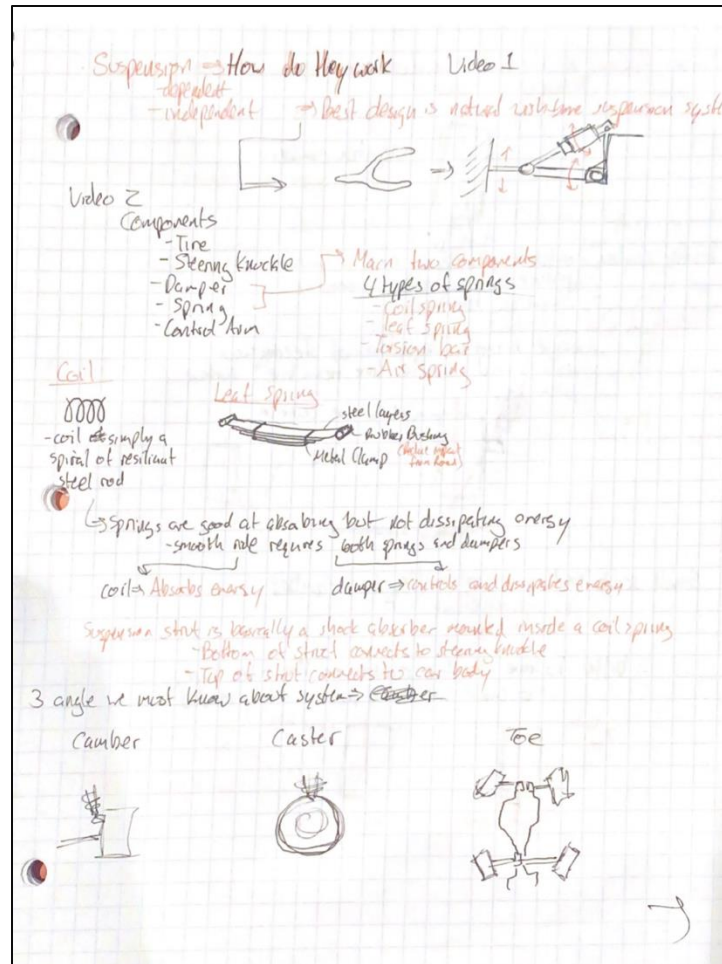 Suspension ⇒ How do they work Video 1
- dependent
- independent → Best design is natural wishbone suspension syste
Video 2
Components
- Tire
- Steering Knuckle
- Damper
- Spring
- Control Arm
Main two components
4 types of springs
- Coil spring
- leaf spring
- Torsion bar
- Air spring
Coil
- coil simply a
spiral of resilient
steel rod
Leaf Spring
steel layers
Rubber Bushing
Metal Clamp
from Road)
↳ Springs are good at absorbing but not dissipating energy
- smooth ride requires both springs and dampers
coil ⇒ Absorbs energy damper ⇒ controls and dissipates energy
Suspension strut is basically a shock absorber mounted inside a coil spring
- Bottom of strut connects to steering knuckle
- Top of strut connects to car body
3 angle we must know about system ⇒
Camber Caster Toe